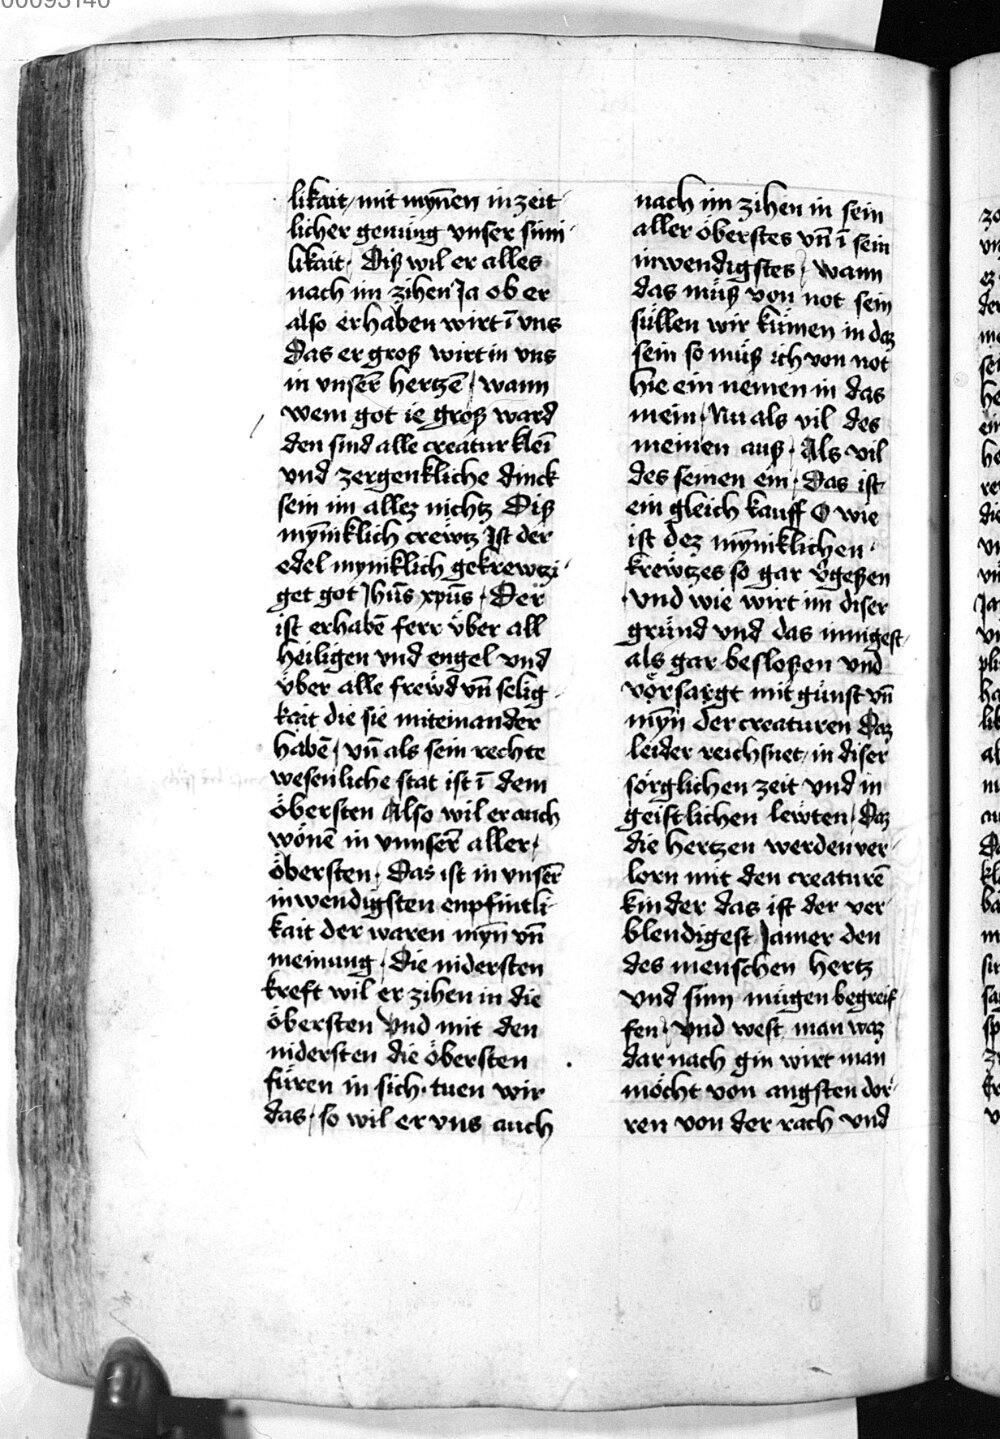 00093140
likait / mit mÿnen in zeit
licher genüng vnser sinn
likait · Diß wil er alles
nach im zihen Ja ob er
also erhaben wirt ī vns
Das er groß wirt in vns
in vnser̄ hertzē / wann
wem got ie groß ward
den sind alle creatur kleī
vnd zergenkliche dinck
sein im allez nichtz Diß
mȳniklich crewtz Ist der
edel myniklich gekrewtzi
get got Jhūs xpūs · Der
ist erhabē ferr über all
heiligen vnd engel vnd
über alle frewd vn̄ selig
kait die sie miteinander
habē / vn̄ als sein rechte
wesenliche stat ist ī dem
öbersten Also wil er auch
wonē in vnnser̄ aller
öbersten · Das ist in vnser̄
inwendigsten enpfintli
kait der waren mȳn vn̄
meinung · die nidersten
kreft wil er zihen in die
öbersten Vnd mit den
nidersten die öbersten
füren in sich · tuen wir
das / so wil er vns auch
nach im zihen in sein
aller öberstes vn̄ ī sein
inwendigstes / wann
das müß von not sein
süllen wir kumen in daz
sein so müß ich von not
hie ein nemen in das
mein / Nu als vil des
meinen auß · Als vil
des seinen ein · Das ist
ein gleich kauff O wie
ist dez mȳniklichen
krewtzes so gar v̄geßen
vnd wie wirt im diser
gründ vnd das innigest
als gar besloßen vnd
vorsargt mit günst vn̄
mȳn der creaturen Daz
leider reichsnet / in diser
sorglichen zeit vnd in
geistlichen lewten / Daz
die hertzen werden ver
lorn mit den creaturē
kinder das ist der ver
blendigest Jamer den
des menschen hertz
vnd sinn mügen begreif
fen / Vnd west man waz
dar nach gin wirt man
möcht von angsten dor
ren von der rach vnd